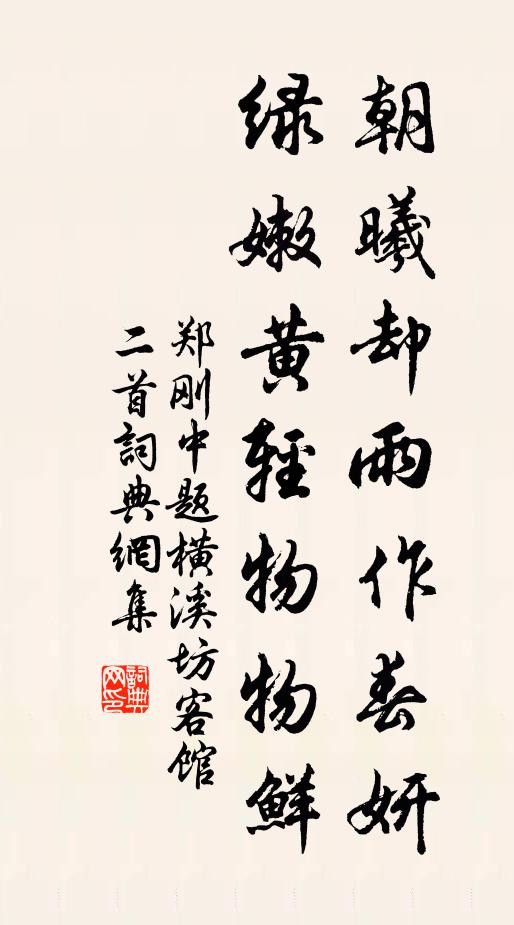 朝曦却雨作春妍
绿嫩黄轻物物鮮
郑刚中题横溪坊客馆
二首詞典網集
詞典网印